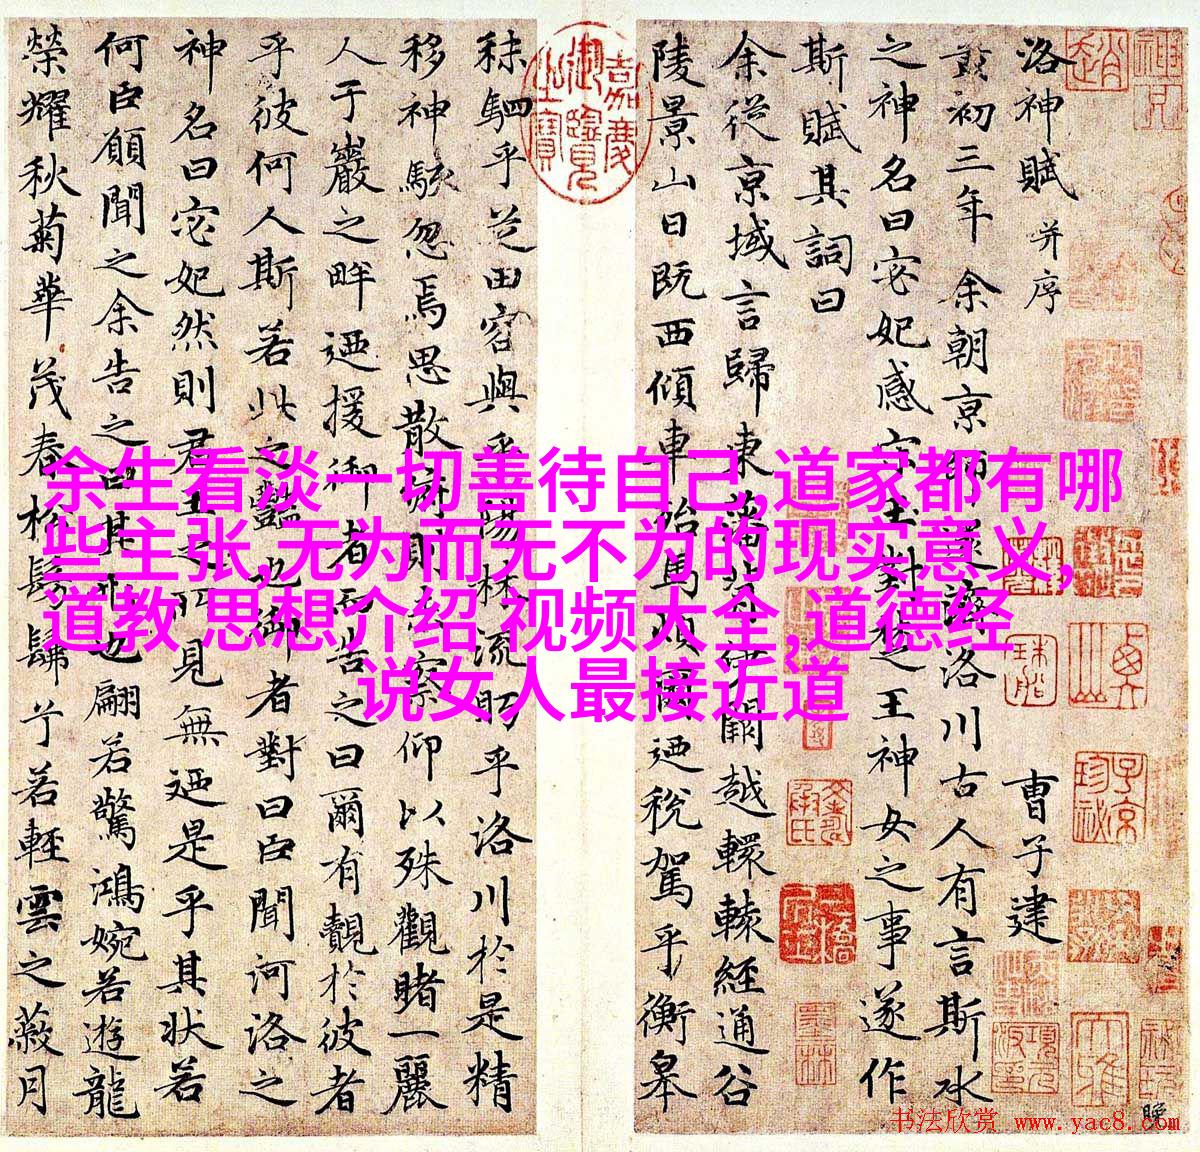 洛神賦 并序
曹子建
黃初三年余朝京師還濟洛川古人有言斯水
之神名曰宓妃感宋玉對楚王神女之事遂作
斯賦其詞曰
余從京域言歸東藩背伊闕越轘轅經通谷
陵景山日既西傾車殆馬煩爾迺稅駕乎蘅皋
秣駟乎芝田容與乎陽林流眄乎洛川於是精
移神駭忽焉思散俯則未察仰以殊觀睹一麗
人于巖之畔迺援御者而告之曰爾有覿於彼者
乎彼何人斯若此之豔也御者對曰臣聞河洛之
神名曰宓妃然則君王之所見無迺是乎其狀若
何臣願聞之余告之曰其形也翩若驚鴻婉若遊龍
榮耀秋菊華茂春松髣髴兮若輕雲之蔽月
余生看淡一切善待自己,道家都有哪
些主张,无为而无不为的现实意义,
道教 思想介绍 视频大全,道德经
说女人最接近道
嘉慶御覽之寶
书法欣赏 www.yac8.com